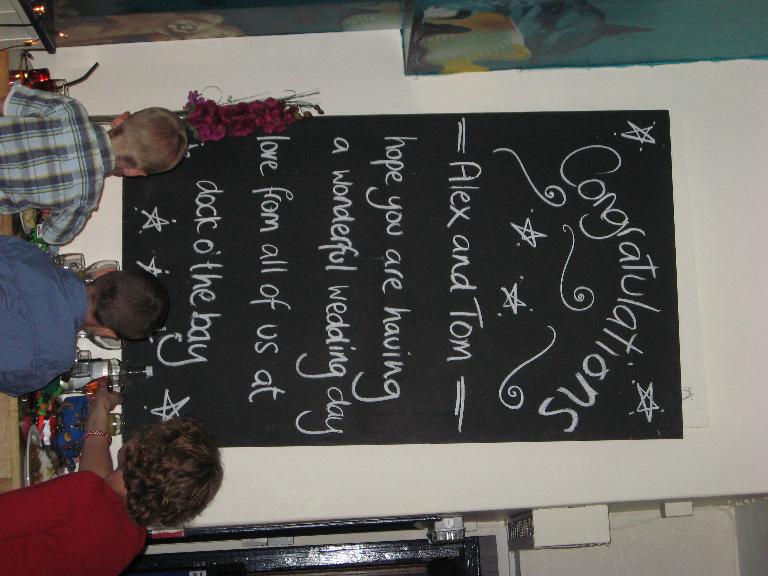 Congratulations
= Alex and Tom =
hope you are having
a wonderful wedding day
love from all of us at
dock o' the bay